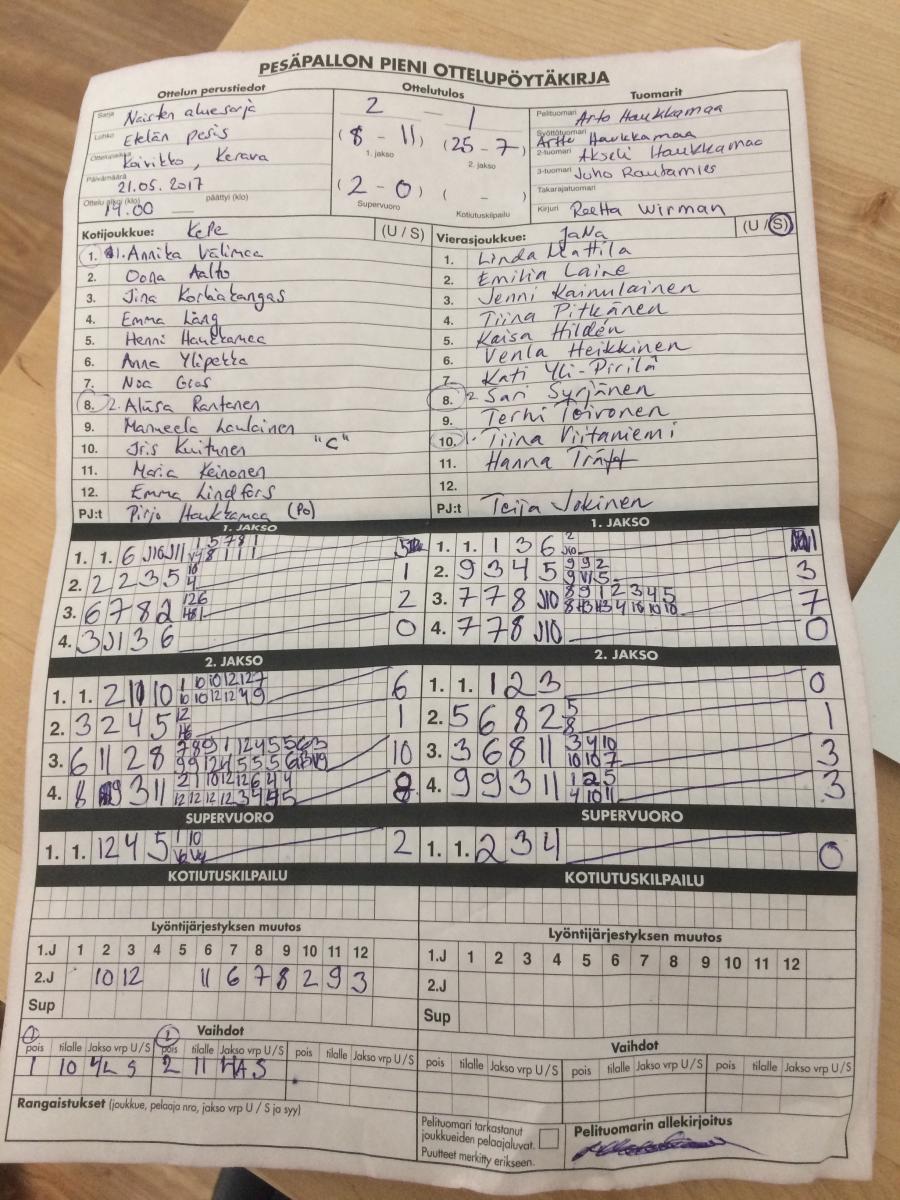 PESÄPALLON PIENI OTTELUPÖYTÄKIRJA
Ottelun perustiedot Ottelutulos Tuomarit
Sarja Naisten aluesarja
Lohko Etelän pesis
Koivikko, Kerava
Päivämäärä 21.05.2017
Ottelu alkoi (klo) 14.00 — päättyi (klo)
2 — 1
(8 - 11) (25 - 7)
1. jakso 2. jakso
(2 - 0) ( - )
Supervuoro Kotiutuskilpailu
Pelituomari Arto Haukkamaa
Syöttötuomari Artto Haukkamaa
2-tuomari Akseli Haukkamaa
3-tuomari Juho Rautamies
Takarajatuomari
Kirjuri Reetta Wirman
Kotijoukkue: KePe (U / S)
1. 1. Annika Välimaa
2. Oona Aalto
3. Jina Korkiakangas
4. Emma Läng
5. Henni Haukkamaa
6. Anna Ylipekka
7. Noa Gras
8. 2. Aliisa Rantanen
9. Manueela Laulainen
10. Iris Kuitunen "C"
11. Maria Keinonen
12. Emma Lindfors
PJ:t Pirjo Haukkamaa (Po)
Vierasjoukkue: JaNa (U / S)
1. Linda Mattila
2. Emilia Laine
3. Jenni Kainulainen
4. Tiina Pitkänen
5. Kaisa Hildén
6. Venla Heikkinen
7. Kati Yli-Pirilä
8. 2. Sari Syrjänen
9. Terhi Toivonen
10. 1. Tiina Viitaniemi
11. Hanna Träff
12.
PJ:t Teija Jokinen
1. JAKSO
1. 1. 6 J10 J11
2. 2 2 3 5 1
3. 6 7 8 2 2
4. 3 J1 3 6 0
1. JAKSO
1. 1. 1 3 6
2. 9 3 4 5 3
3. 7 7 8 J10 7
4. 7 7 8 J10 0
2. JAKSO
1. 1. 2 10 10 6
2. 3 2 4 5 1
3. 6 11 2 8 10
4. 8 9 3 11 8
2. JAKSO
1. 1. 1 2 3 0
2. 5 6 8 2 5 8 1
3. 3 6 8 11 3 4 10 10 10 7 3
4. 9 9 3 11 1 2 5 4 10 11 3
SUPERVUORO
1. 1. 12 4 5 1 10 2
SUPERVUORO
1. 1. 2 3 4 0
KOTIUTUSKILPAILU
KOTIUTUSKILPAILU
Lyöntijärjestyksen muutos
1.J 1 2 3 4 5 6 7 8 9 10 11 12
2.J 10 12 11 6 7 8 2 9 3
Sup
Lyöntijärjestyksen muutos
1.J 1 2 3 4 5 6 7 8 9 10 11 12
2.J
Sup
Vaihdot
pois tilalle Jakso vrp U / S pois tilalle Jakso vrp U / S pois tilalle Jakso vrp U / S
1 10 S 2 11 S
Vaihdot
pois tilalle Jakso vrp U / S pois tilalle Jakso vrp U / S pois tilalle Jakso vrp U / S
Rangaistukset (joukkue, pelaaja nro, jakso vrp U / S ja syy)
Pelituomari tarkastanut
joukkueiden pelaajaluvat.
Puutteet merkitty erikseen.
Pelituomarin allekirjoitus